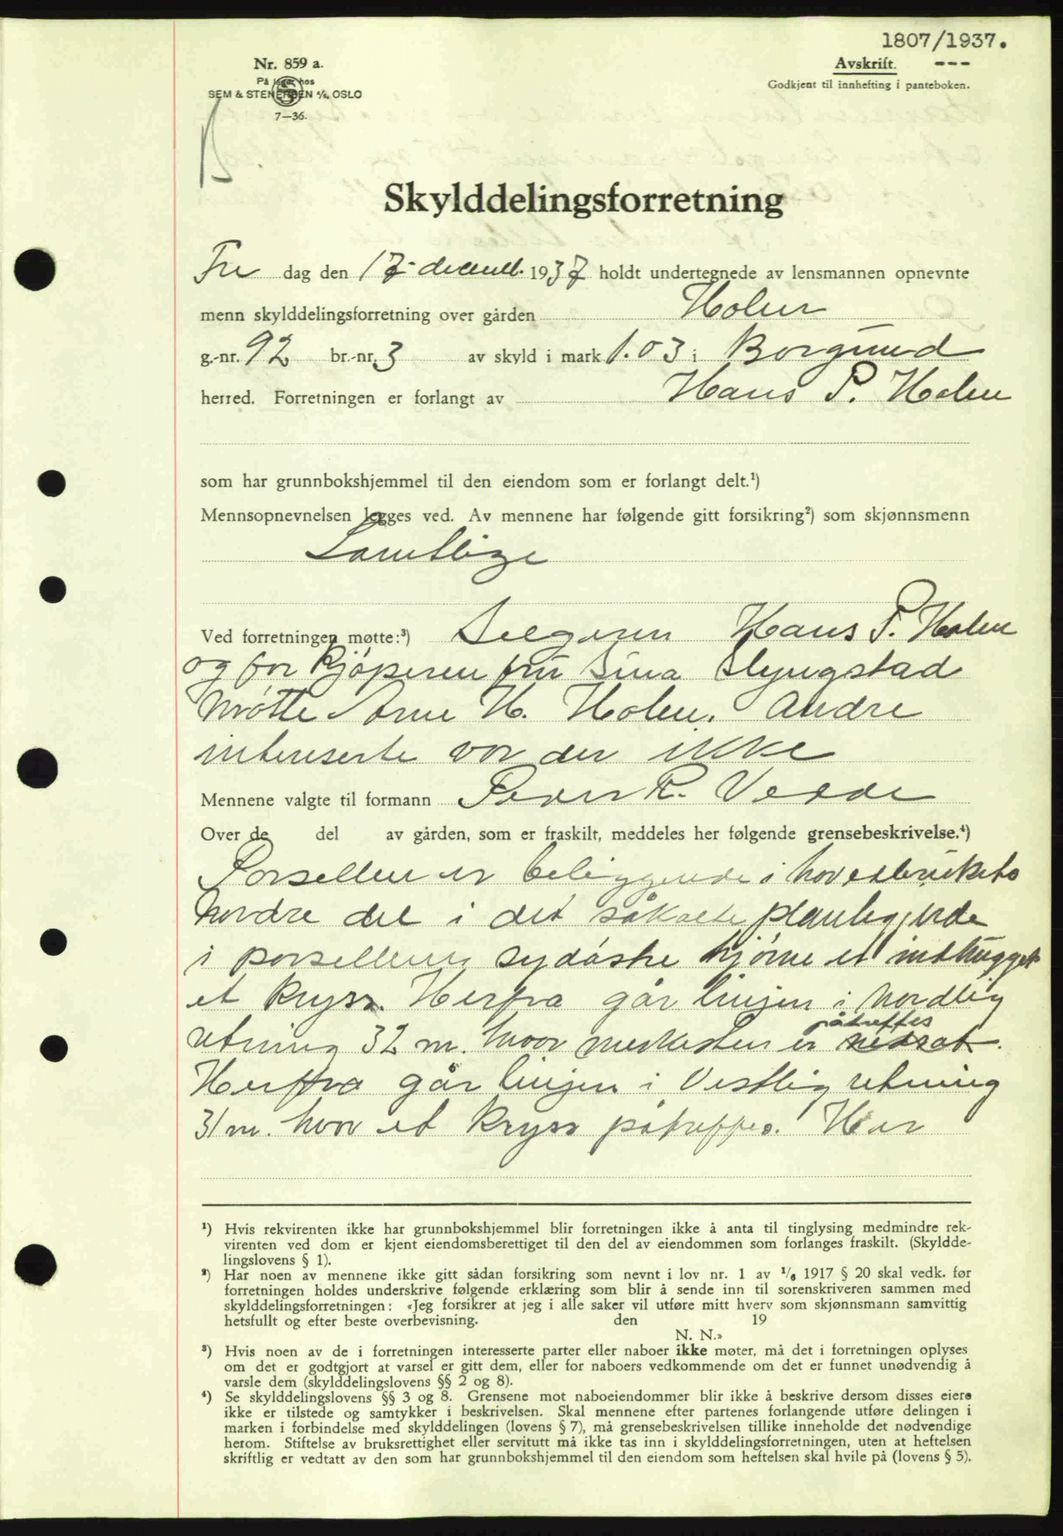 1807/1937.
Nr. 859 a.
På lager hos
SEM & STENERSEN A/S, OSLO
7—36.
Avskrift. ---
Godkjent til innhefting i panteboken.
Skylddelingsforretning
Fre dag den 17 decemb. 1937 holdt undertegnede av lensmannen opnevnte
menn skylddelingsforretning over gården Holen
g.-nr. 92 br.-nr. 3 av skyld i mark 1.03 i Borgund
herred. Forretningen er forlangt av Hans P. Holen
som har grunnbokshjemmel til den eiendom som er forlangt delt.¹)
Mennsopnevnelsen legges ved. Av mennene har følgende gitt forsikring²) som skjønnsmenn
Samtlige
Ved forretningen møtte:³) Selgeren Hans P. Holen
og for kjøperen fru Sina Slyngstad
møtte Arne H. Holen. Andre
interiserte var der ikke
Mennene valgte til formann Peder R.
Over de del av gården, som er fraskilt, meddeles her følgende grensebeskrivelse.⁴)
Porsellen er beliggende i hovedbrukets
nordre del i det såkalte planlegjerde
i porsellens sydøstre hjørne er indhugget
et kryss. Herfra går linjen i nordlig
retning 32 m. hvor merkesten er nedsat påtreffes.
Herfra går linjen i Vestlig retning
31 m. hvor et kryss påtreffes. Her
¹) Hvis rekvirenten ikke har grunnbokshjemmel blir forretningen ikke å anta til tinglysing medmindre rek-
virenten ved dom er kjent eiendomsberettiget til den del av eiendommen som forlanges fraskilt. (Skyldde-
lingslovens § 1).
²) Har noen av mennene ikke gitt sådan forsikring som nevnt i lov nr. 1 av 1/6 1917 § 20 skal vedk. før
forretningen holdes underskrive følgende erklæring som blir å sende inn til sorenskriveren sammen med
skylddelingsforretningen: «Jeg forsikrer at jeg i alle saker vil utføre mitt hverv som skjønnsmann samvittig
hetsfullt og efter beste overbevisning. den 19
N. N.»
³) Hvis noen av de i forretningen interesserte parter eller naboer ikke møter, må det i forretningen oplyses
om det er godtgjort at varsel er gitt dem, eller for naboers vedkommende om det er funnet unødvendig å
varsle dem (skylddelingslovens §§ 2 og 8).
⁴) Se skylddelingslovens §§ 3 og 8. Grensene mot naboeiendommer blir ikke å beskrive dersom disses eiere
ikke er tilstede og samtykker i beskrivelsen. Skal mennene efter partenes forlangende utføre delingen i
marken i forbindelse med skylddelingen (lovens § 7), må grensebeskrivelsen tillike inneholde det nødvendige
herom. Stiftelse av bruksrettighet eller servitutt må ikke tas inn i skylddelingsforretningen, uten at heftelsen
skriftlig er vedtatt av den som har grunnbokshjemmel til den eiendom som heftelsen skal hvile på (lovens § 5).